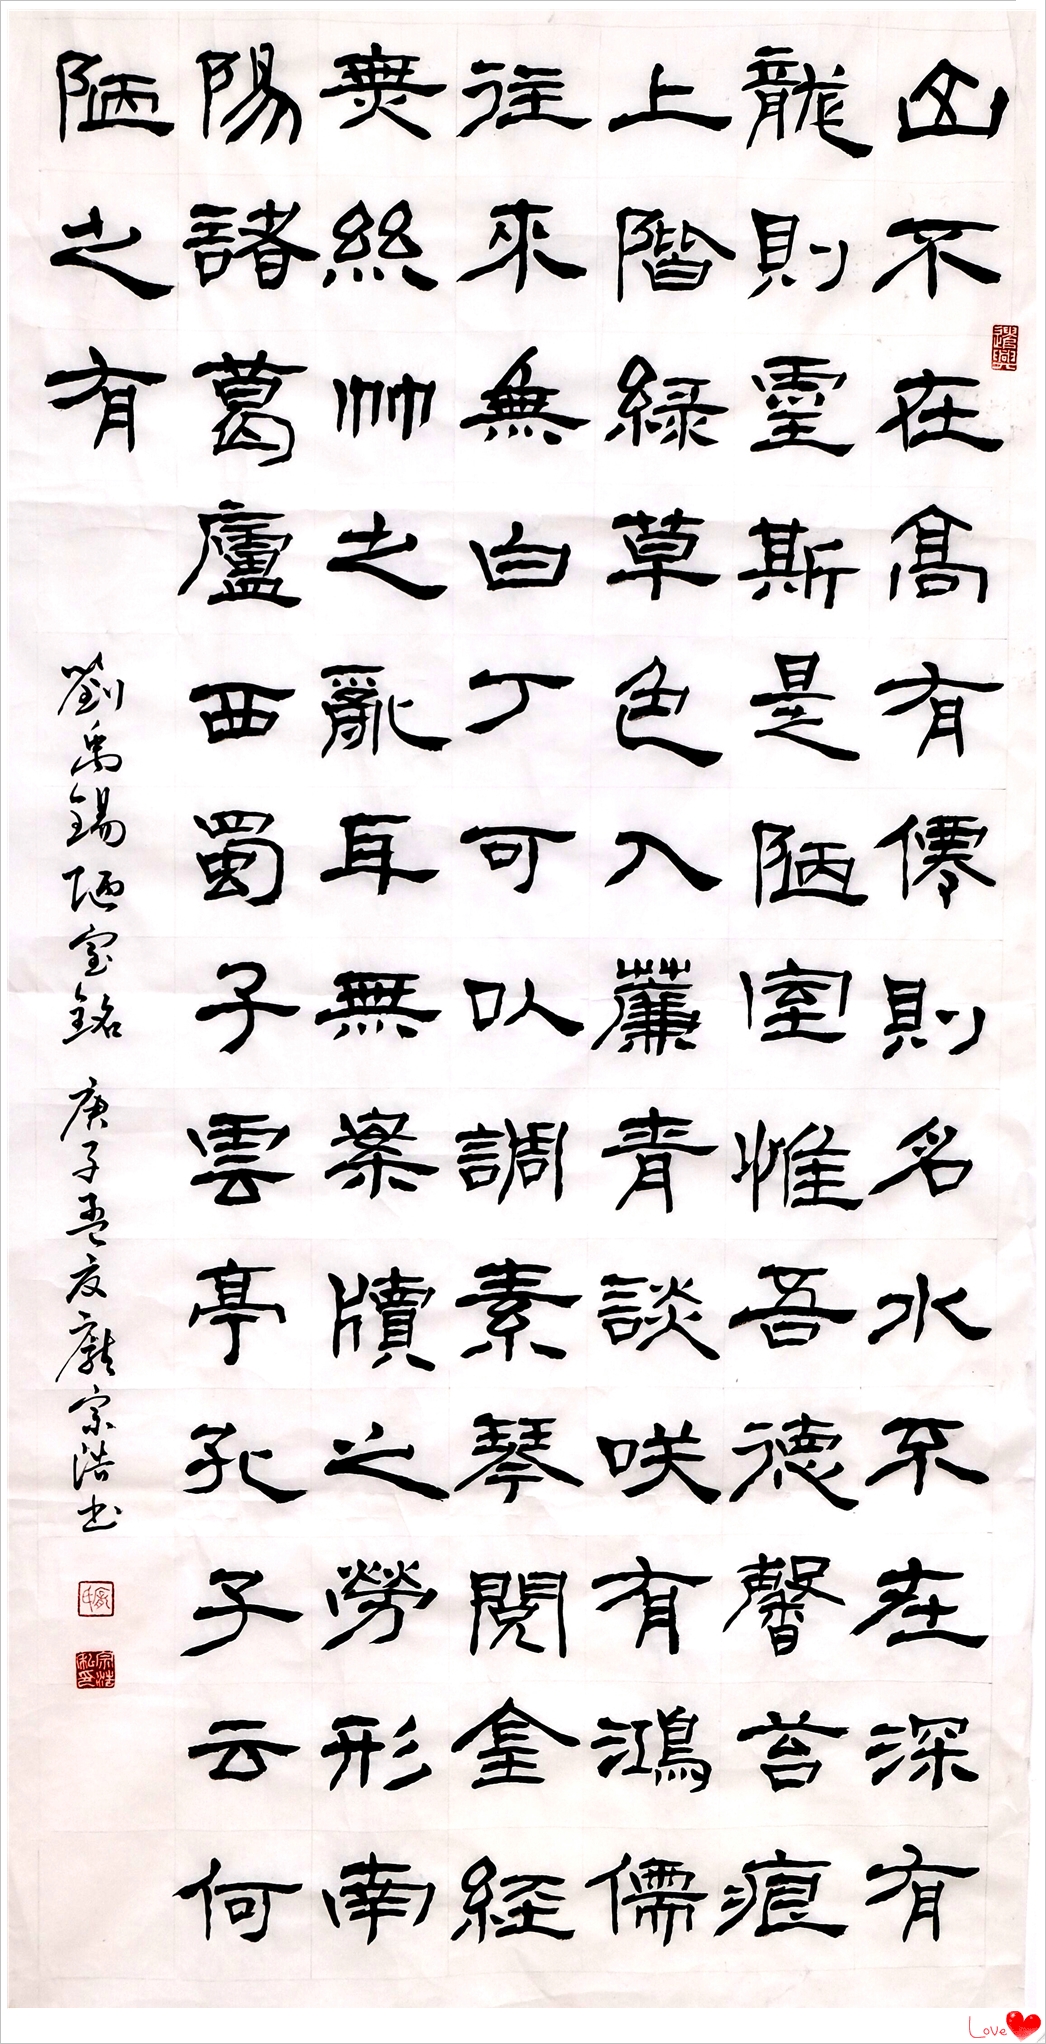 山不在髙有僊則名水不在深有
龍則靈斯是陋室惟吾德馨苔痕
上階綠草色入簾青談咲有鴻儒
往來無白丁可以調素琴閱金經
無絲竹之亂耳無案牘之勞形南
陽諸葛廬西蜀子雲亭孔子云何
陋之有
劉禹錫陋室銘 庚子孟夏龐宗浩书
宗浩私印
Love